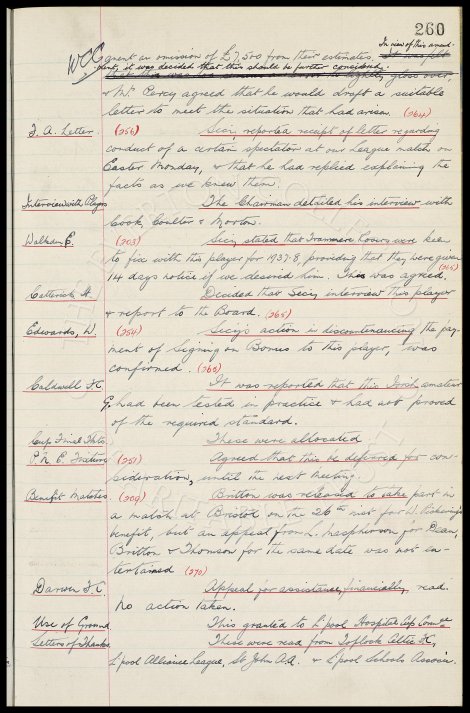 260
WCC agent an omission of £7,500 from their estimates. In view of this amend-
ment, it was decided that this should be further considered,
& Mr Percy agreed that he would draft a suitable
letter to meet the situation that had arisen. (264)
F. A. Letter. (256) Secy. reported receipt of letter regarding
conduct of a certain spectator at our League match on
Easter Monday, & that he had replied explaining the
facts as we knew them.
Interview with Players The Chairman detailed his interview with
Cook, Coulter & Morton.
(203) Secy. stated that Tranmere Rovers were keen
to fix with this player for 1937-8, providing that they were given
14 days notice if we desired him. This was agreed. (265)
Catterick H. Decided that Secy. interview this player
& report to the Board. (265)
Edwards, W. (254) Secy's action in discontinuing the pay-
ment of Signing on Bonus to this player, was
confirmed. (265)
Caldwell H C It was reported that this Irish amateur
G. had been tested in practice & had not proved
of the required standard.
Cup Final Tkts. These were allocated
P. N. E. Fixture (251) Agreed that this be deferred for con-
sideration, until the next meeting.
Benefit Matches. (209) Britton was released to take part in
a match at Bristol on the 26th inst for W. Pickering's
benefit, but an appeal from L. Macpherson for Dean,
Britton & Thomson for the same date was not en-
tertained (270)
Darwen F. C Appeal for assistance, financially, read.
No action taken.
Use of Ground This granted to L'pool Hospitals Cup Comtee
Letters of Thanks These were read from Toplock Celtic F.C,
L'pool Alliance League, St John A.A. & L'pool Schools Associn.